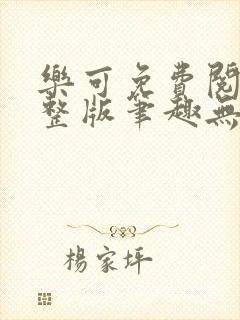 樂可免費閱
整版筆趣無
楊家坪